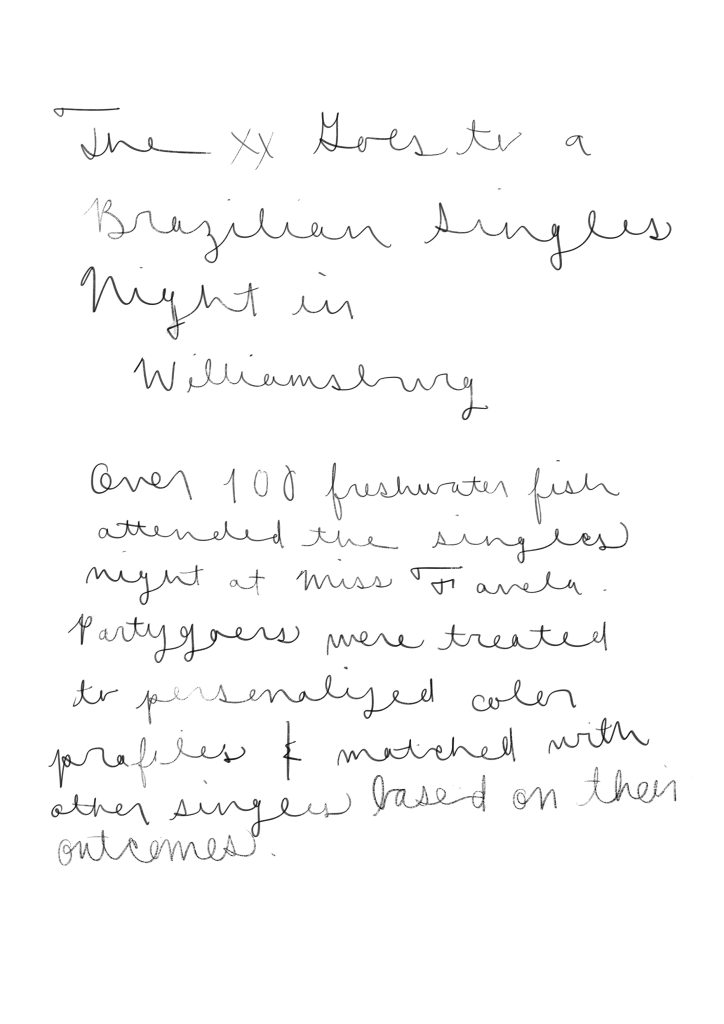 The xx Goes to a
Brazilian Singles
Night in
Williamsburg
Over 100 freshwater fish
attended the singles
night at Miss Favela.
Partygoers were treated
to personalized color
profiles & matched with
other singles based on their
outcomes.